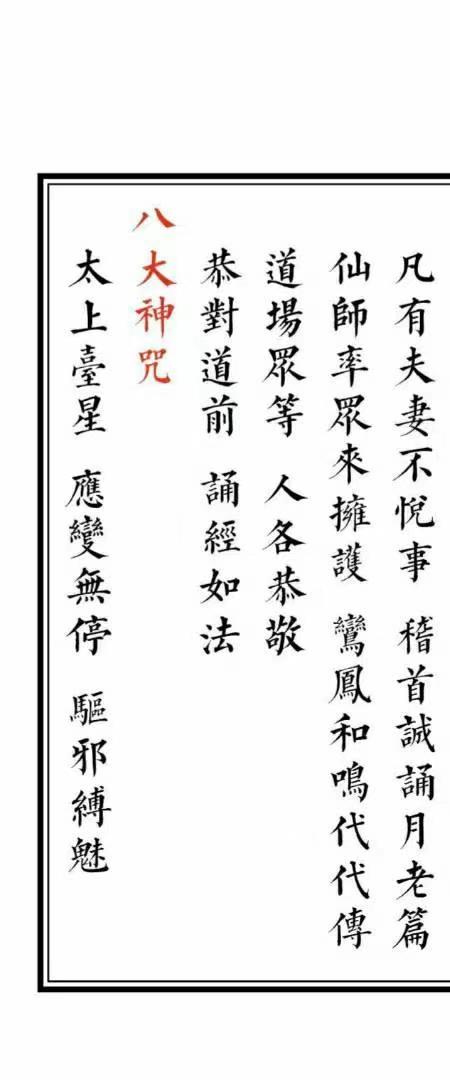 凡有夫妻不悅事 稽首誠誦月老篇
仙師率眾來擁護 鸞鳳和鳴代代傳
道場眾等 人各恭敬
恭對道前 誦經如法
八大神咒
太上臺星 應變無停 驅邪縛魅